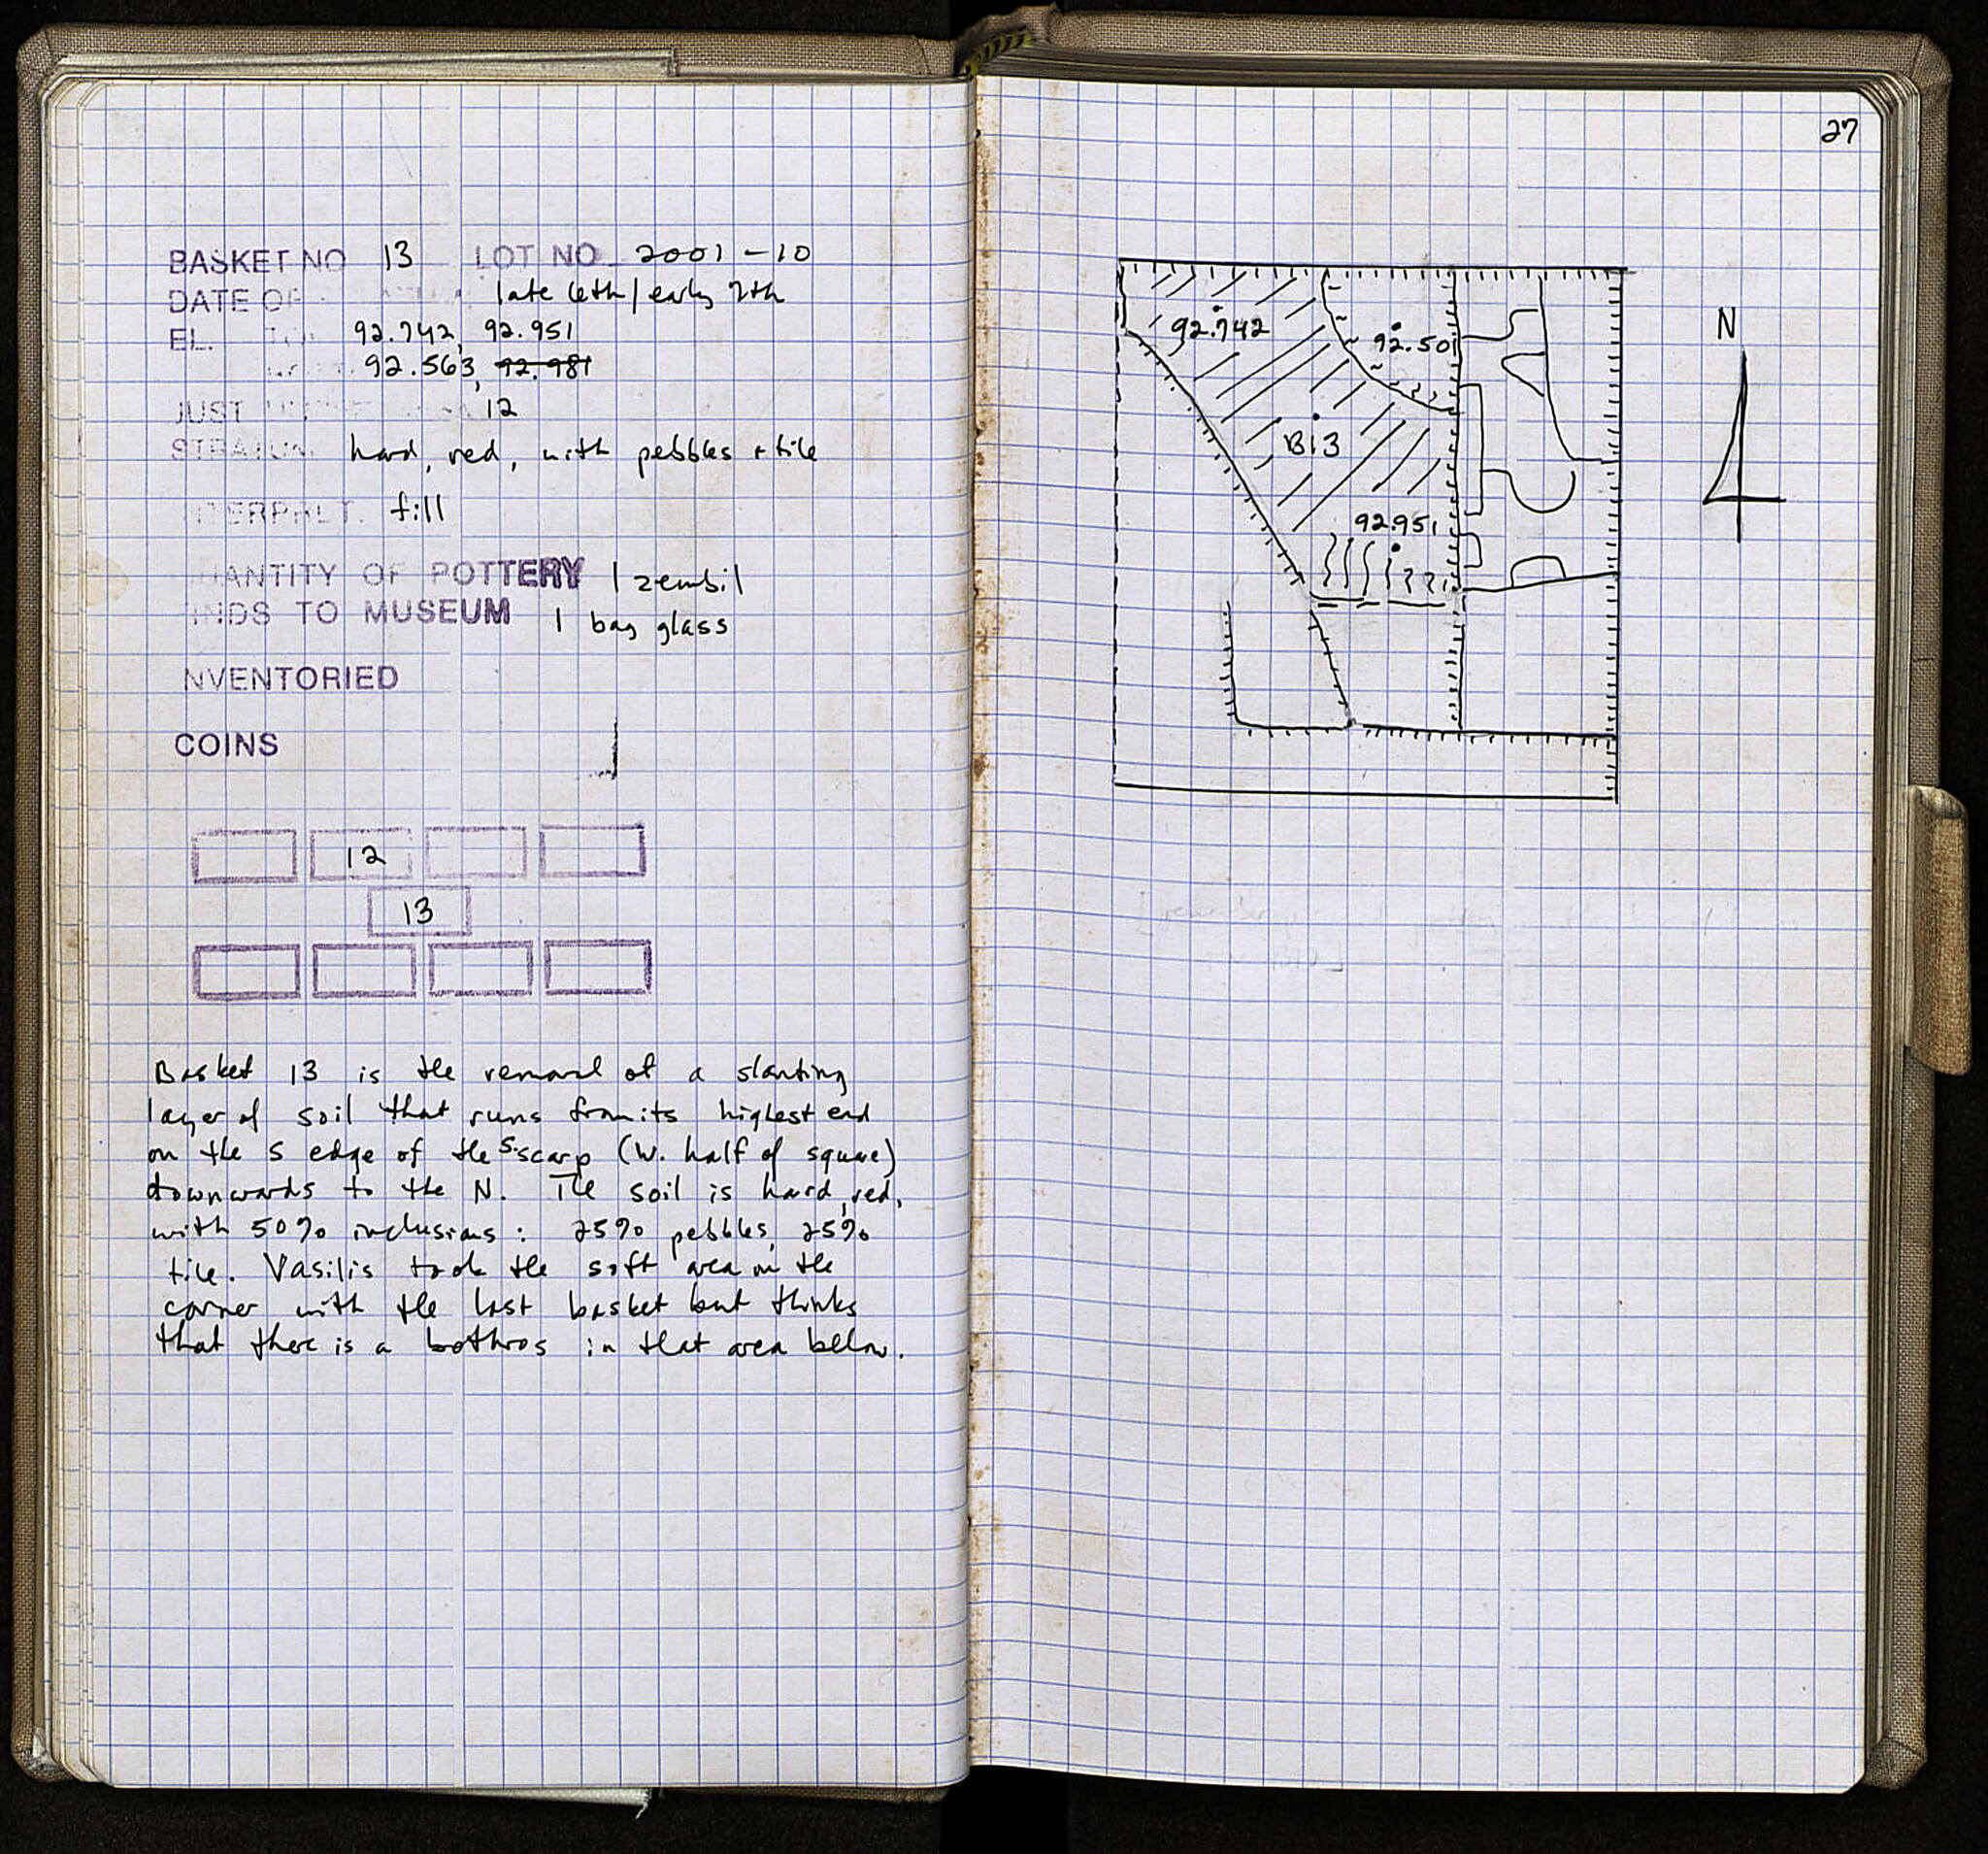 BASKET NO 13 LOT NO 2001-10
DATE OF late 6th/early 7th
EL. 92.742, 92.951
92.563, 92.981
JUST 12
STRATUM hard, red, with pebbles + tile
INTERPRET. fill
QUANTITY OF POTTERY 1 zembil
FINDS TO MUSEUM 1 bag glass
INVENTORIED
COINS
12
13
Basket 13 is the removal of a slanting
layer of soil that runs from its highest end
on the S edge of the S scarp (W. half of square)
downwards to the N. The soil is hard, red,
with 50% inclusions: 25% pebbles, 25%
tile. Vasilis took the soft area in the
corner with the last basket but thinks
that there is a bothros in that area below.
27
92.742
92.501
N
B13
92.951